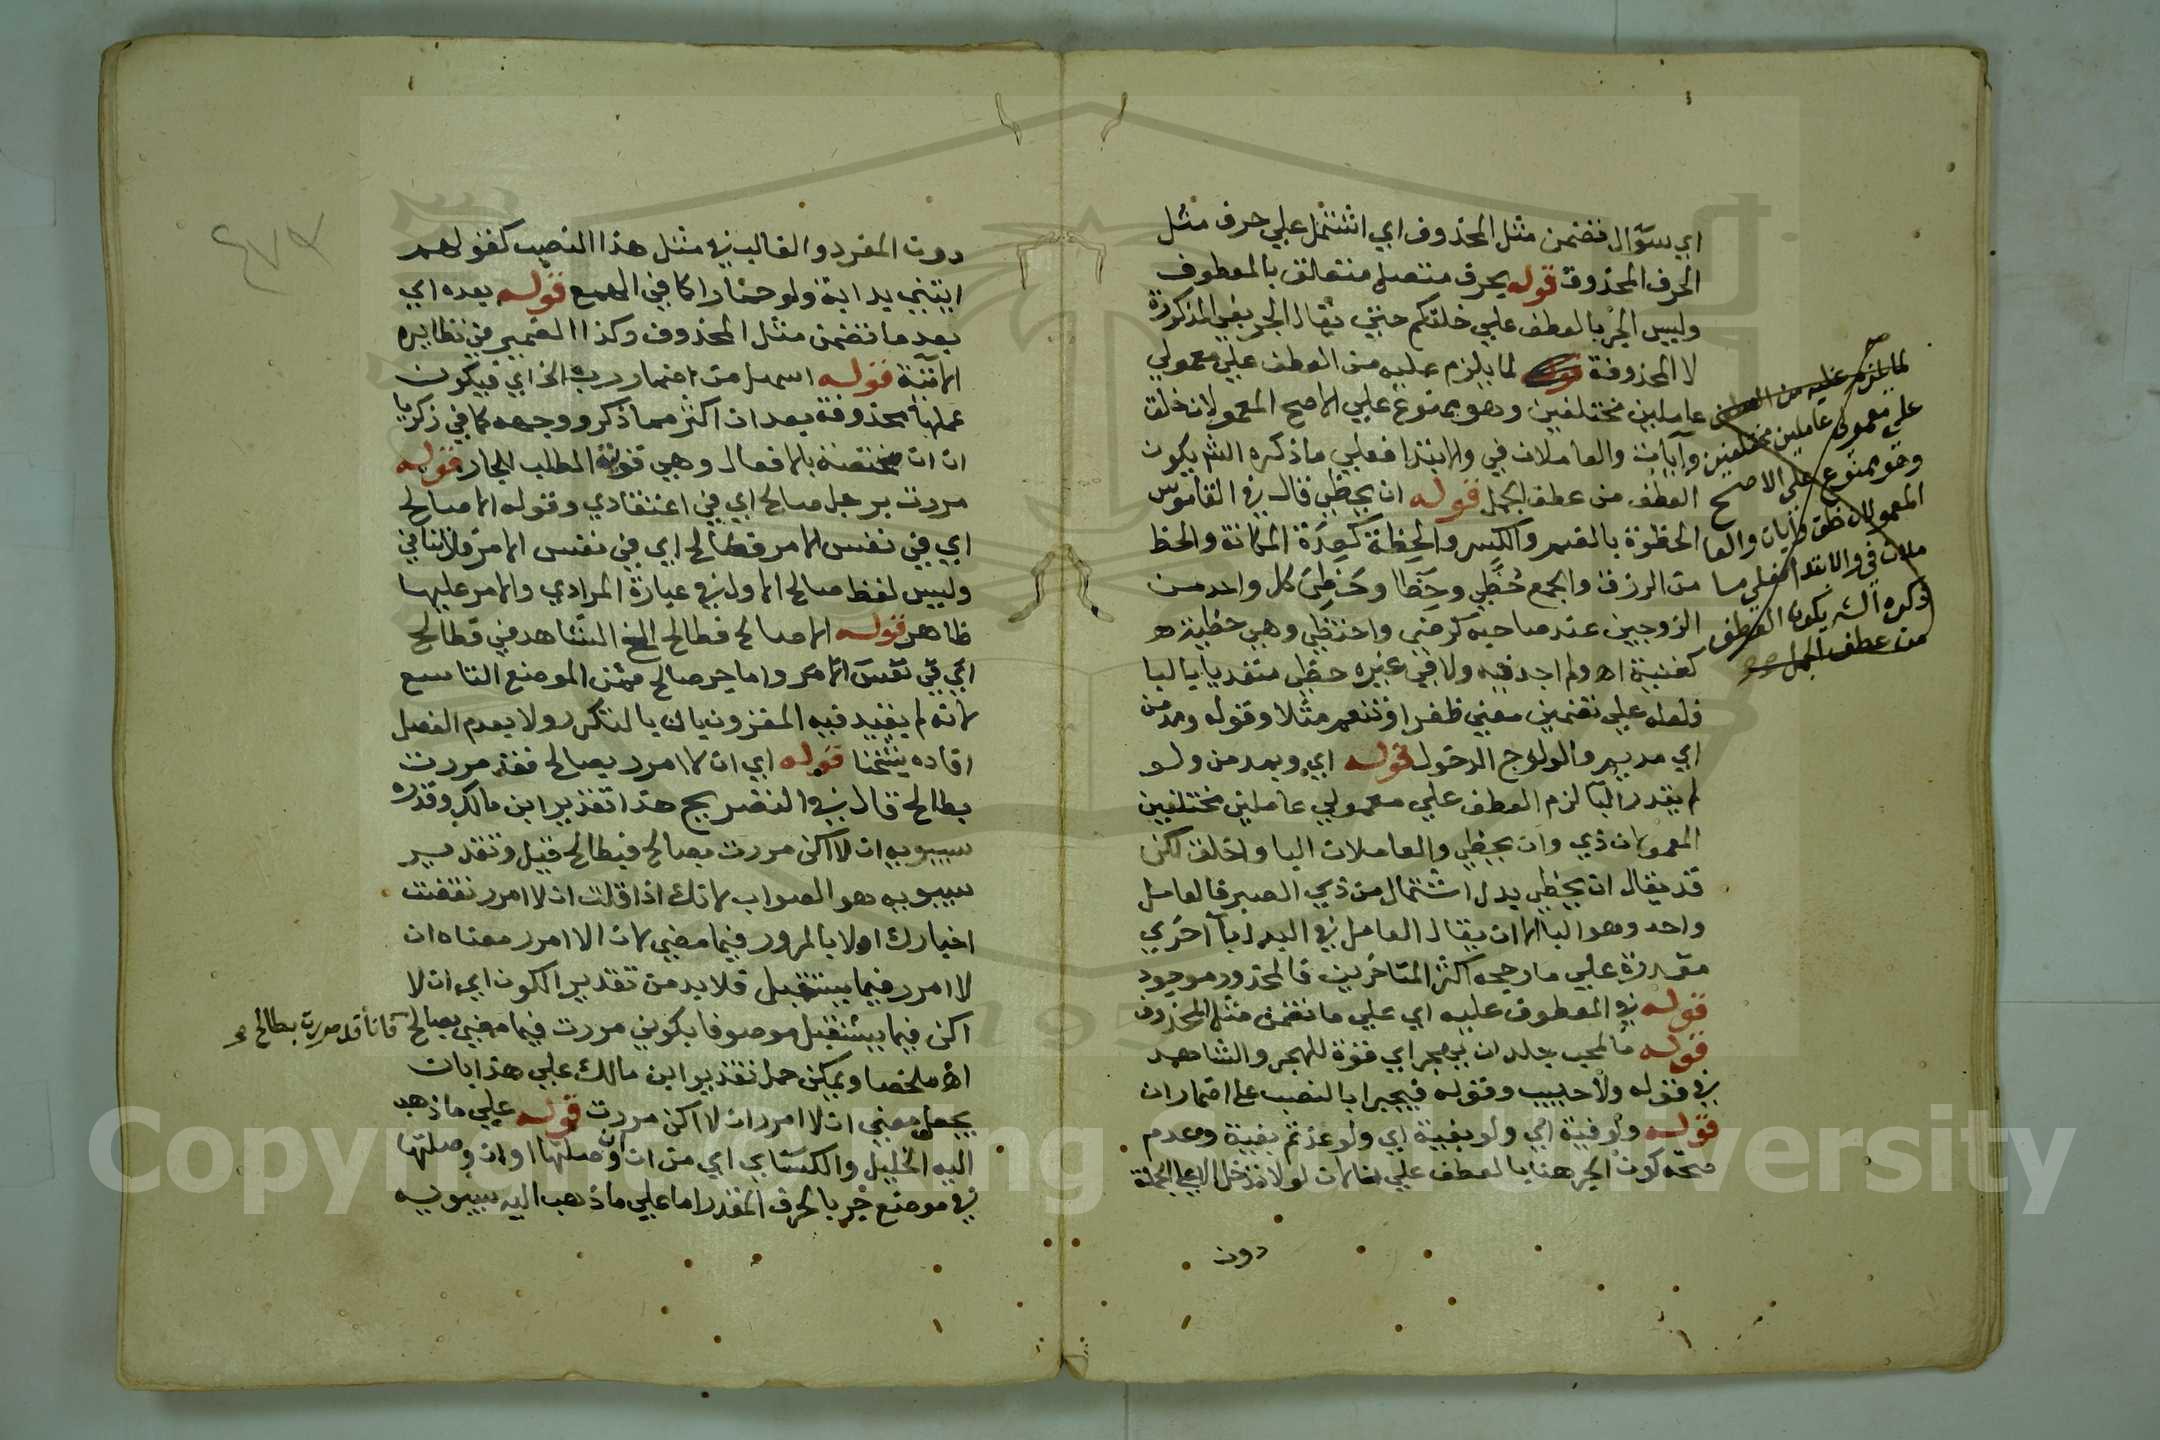 اي سؤال تضمن مثل المحذوف اي اشتمل علي حرف مثل
الحرف المحذوف قوله بحرف متصل متعلق بالمعطوف
وليس الجر بالعطف علي خلقكم حتي يقال الجر بفي المذكورة
لا المحذوفة لما يلزم عليه من العطف علي معمولي
عاملين مختلفين وهو ممنوع علي الاصح المعمولان خلق
وآيات والعاملان في والابتدا فعلي ما ذكره الش يكون
العطف من عطف الجمل قوله ان يحظي قال في القاموس
الحظوة بالضم والكسر والحظة كعدة المكانة والحظ
من الرزق والجمع حظي وحظا وحظي كل واحد من
الزوجين عند صاحبه كرضي واحتظي وهي حظية
كغنية اه ولم اجد فيه ولا في غيره حظي متعديا بالبا
فلعله علي تضمين معني ظفر او تنعم مثلا وقوله ومدمن
اي مديم والولوج الدخول قوله اي وبمدمن ولو
لم يقدر البا لزم العطف علي معمولي عاملين مختلفين
المعمولان ذي وان يحظي والعاملان البا واخلق لكن
قد يقال ان يحظي بدل اشتمال من ذي الصبر فالعامل
واحد وهو البا الا ان يقال العامل في البدل باآخري
مقدرة علي ما رجحه اكثر المتاخرين فالمحذور موجود
قوله في المعطوف عليه اي علي ما تضمن مثل المحذوف
قوله ما لمحب جلد ان يهجر اي قوة للهجر والشاهد
في قوله ولا حبيب وقوله فيجبرا بالنصب علي اضمار ان
قوله ولو فية اي ولو بفية اي ولو عذتم بفية وعدم
صحة كون الجر هنا بالعطف علي لان لو لا تدخل الا علي الجملة
دون
لما يلزم عليه من العطف
علي معمولي عاملين مختلفين
وهو ممنوع علي الاصح
المعمولان خلق وآيات والعا
ملان في والابتدا فعلي ما
ذكره الش يكون العطف
من عطف الجمل
دون المفرد والغالب في مثل هذا النصب كقولهم
ائتني بدابة ولو حمارا كما في الهمع قوله بعده اي
بعد ما تضمن مثل المحذوف وكذا الضمير في نظايره
الآتية قوله اسهل من اضمار رب الخ اي فيكون
عملها محذوفة بعد ان اكثر مما ذكر ووجهه كما في زكريا
ان ان مختصة بالافعال وهي قوية المطلب للجار قوله
مررت برجل صالح اي في اعتقادي وقوله الا صالح
اي في نفس الامر فطالح اي في نفس الامر
وليس لفظ صالح الاول في عبارة المرادي والامر عليها
ظاهر قوله الا صالح فطالح الخ الشاهد في فطالح
اي في نفس الامر واما جر صالح فمن الموضع التاسع
لانه لم يقيد فيه المقرون بان بالتكرر ولا بعدم الفصل
افاده شيخنا قوله اي ان لا امرر بصالح فقد مررت
بطالح قال في التصريح هذا تقدير ابن مالك وقدره
سيبويه ان لا اكن مررت بصالح فبطالح قيل وتقدير
سيبويه هو الصواب لانك اذا قلت ان لا امرر نقضت
اخبارك اولا بالمرور فيما مضي لان الا امرر معناه ان
لا امرر فيما يستقبل فلا بد من تقدير الكون اي ان لا
اكن فيما يستقبل موصوفا بكوني مررت فيما مضي بصالح فانا قد مررت بطالح
اه ملخصا ويمكن حمل تقدير ابن مالك علي هذا بان
يجعل معني ان لا امرر ان لا اكن مررت قوله علي ما ذهب
اليه الخليل والكسائي اي من ان ان وصلتها او ان وصلتها
في موضع جر بالحرف المقدر اما علي ما ذهب اليه سيبويه
Copyright © King Saud University